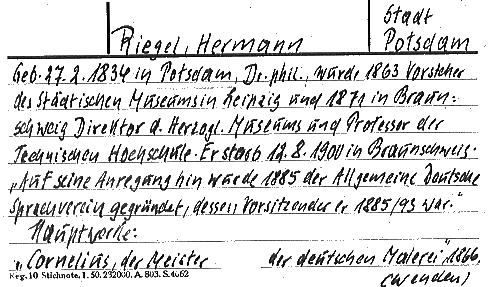 Stadt
Riegel, Hermann Potsdam
Geb. 27.2.1834 in Potsdam, Dr. phil., wurde 1863 Vorsteher
des Städtischen Museums in Leipzig und 1871 in Braun=
schweig Direktor d. Herzogl. Museums und Professor der
Technischen Hochschule. Er starb 12.8.1900 in Braunschweig.
„Auf seine Anregung hin wurde 1885 der Allgemeine Deutsche
Sprachverein gegründet, dessen Vorsitzender er 1885/93 war."
Hauptwerke:
„Cornelius, der Meister der deutschen Malerei" 1866.
Reg. 10 Stichnote. 1. 50. 232000. A. 803. S. 4662 (wenden)